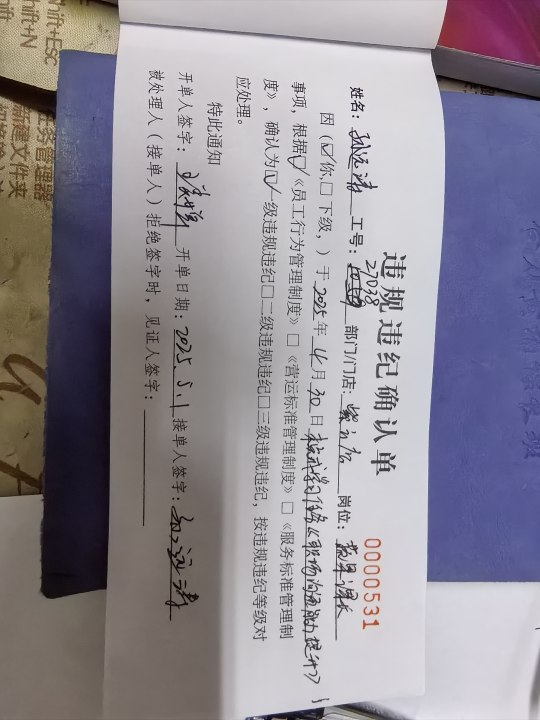 违规违纪确认单
0000531
姓名：孙运涛 工号：27038 部门/门店：紫云店 岗位：蔬果课长
因（☑你、☐下级，）于2025年4月30日 学习任务《职场沟通能力提升》
事项，根据☑《员工行为管理制度》☐《营运标准管理制度》☐《服务标准管理制
度》，确认为☑一级违规违纪☐二级违规违纪☐三级违规违纪，按违规违纪等级对
应处理。
特此通知
开单人签字： 开单日期：2025.5.1 接单人签字：孙运涛
被处理人（接单人）拒绝签字时，见证人签字：